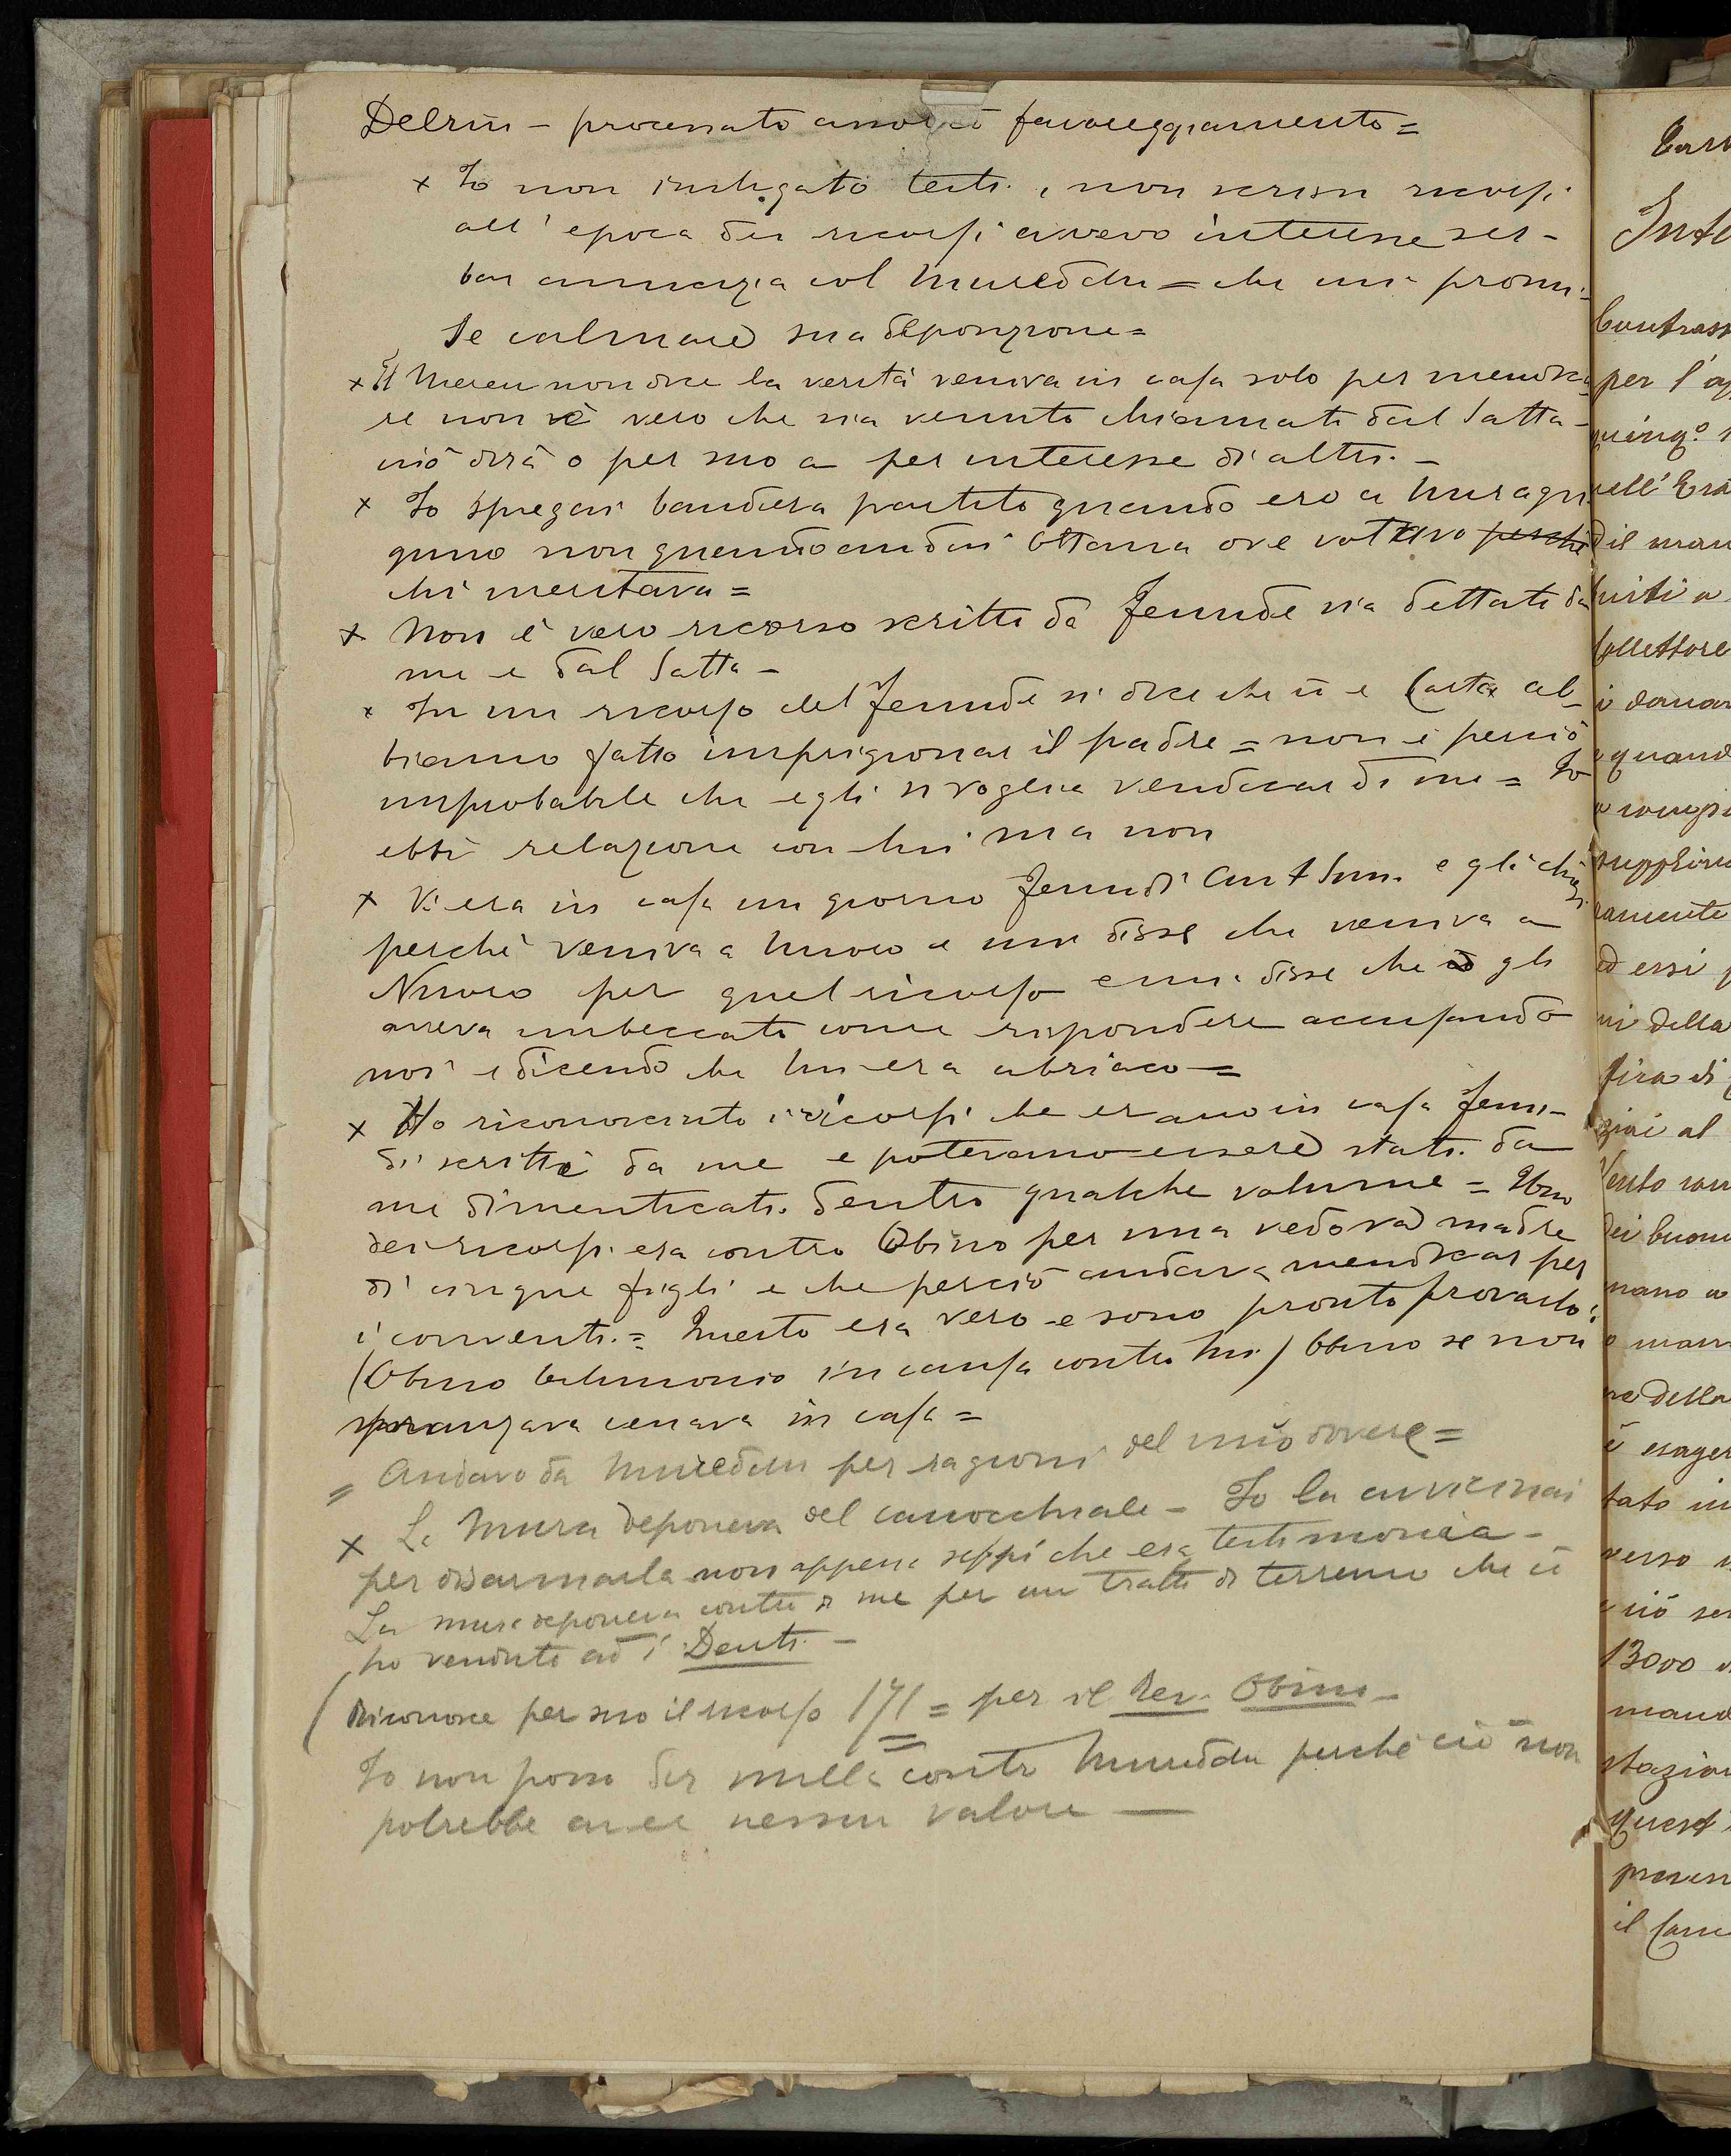 Delrio - processato assolto favoreggiamento =
x Io non instigato testi. e non scrissi ricorsi
all'epoca dei ricorsi avevo interesse ser-
bar amicizia col Mureddu = che mi promi-
se calmare sua deposizione =
x Il Mereu non dice la verità veniva in casa solo per mendica
re non è vero che sia venuto chiamato dal Satta -
ciò dirà o per suo o per interesse di altri. -
x Io spiegai bandiera partito quando ero a
non quando andai Ottana ove votavo perché
chi meritava =
x Non è vero ricorso scritto da Fenude sia dettato da
me e dal Satta -
x In un ricorso del Fenude si dice che io e Carta ab-
biamo fatto imprigionar il padre = non è perciò
improbabile che egli si voglia vendicar di me = Io
ebbi relazione con lui ma non
x Vi era in casa un giorno Fenudi Ant. e gli chiesi
perché veniva a Nuoro e mi disse che veniva a
Nuoro per quel ricorso e mi disse che gli
aveva imbeccato come rispondere accusando
noi e dicendo che lui era ubriaco =
x Ho riconosciuto i ricorsi che erano in casa Fenu-
di scritti da me e potevano essere stati da
me dimenticati. dentro qualche volume = Uno
dei ricorsi era contro Obino per una vedova madre
di cinque figli e che perciò andava mendicar per
i conventi. = Questo era vero e sono pronto provarlo:
(Obino testimonio in causa contro lui) Obino se non
pranzava cenava in casa =
= Andavo da Mureddu per ragioni del mio dovere =
x La Mura deponeva del canocchiale - Io la avvicinai
per disarmarla non appena seppi che era testimonia -
La Mura deponeva contro di me per un tratto di terreno che io
ho venduto ad i Denti. -
(Riconosce per suo il ricorso 171 = per il Rev. Obino -
Io non posso dir nulla contro Mureddu perché ciò non
potrebbe avere nessun valore —
Inte
Contrass
per l'
quinq.º
nell'
il man
Collettore
i danar
quand
supplica
ramente
ed essi
ni della
fira di
al
dei buoni
mano a
della
è esager
tato in
verso
ciò ser
13000
mand
stazion
quest
presen
il